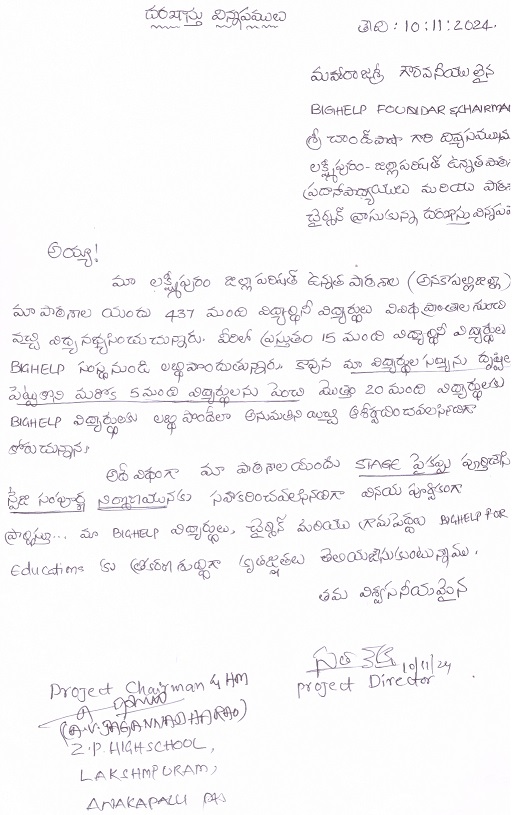 దరఖాస్తు విన్నపములు
తాది: 10:11:2024.
మహారాజశ్రీ గౌరవనీయులైన
BIGHELP FOUNDAR & CHAIRMA
శ్రీ చాంద్‌పాషా గారి దివ్యసముఖ
లక్ష్మీపురం- జిల్లాపరిషత్ ఉన్నత పాఠ
ప్రదానోపాధ్యాయులు మరియు పాఠ
ఛైర్మన్ వ్రాసుకున్న దరఖాస్తు విన్నప
అయ్యా!
మా లక్ష్మీపురం జిల్లా పరిషత్ ఉన్నత పాఠశాల (అనకాపల్లిజిల్లా)
మా పాఠశాల యందు 437 మంది విద్యార్థినీ విద్యార్థులు వివిధ ప్రాంతాల నుంచి
వచ్చి విద్యనభ్యసించుచున్నారు. వీరిలో ప్రస్తుతం 15 మంది విద్యార్థినీ విద్యార్థులు
BIGHELP సంస్థ నుండి లబ్ధిపొందుతున్నారు. కావున మా విద్యార్థుల సంఖ్యను దృష్టిలో
పెట్టుకొని మరొక 5 మంది విద్యార్థులను పెంచి మొత్తం 20 మంది విద్యార్థులకు
BIGHELP విద్యార్థులకు లబ్ధి పొందేలా అనుమతిని యిచ్చి ఆశీర్వదించవలసినదిగా
కోరుచున్నాను.
అదే విధంగా మా పాఠశాలయందు STAGE పైకప్పు పూర్తిచేసి
స్టేజి సంపూర్ణ నిర్మాణమునకు సహకరించవలసినదిగా వినయ పూర్వకంగా
ప్రార్థిస్తూ... మా BIGHELP విద్యార్థులు, ఛైర్మన్ మరియు గ్రామపెద్దలు BIGHELP FOR
Educations కు త్రికరణశుద్ధిగా కృతజ్ఞతలు తెలియజేసుకుంటున్నాము.
తమ విశ్వసనీయమైన
10/11/24
Project Director
Project Chairman & HM
(A.V. JAGANNADHARAO)
Z.P. HIGH SCHOOL,
LAKSHMPURAM,
ANAKAPALLI